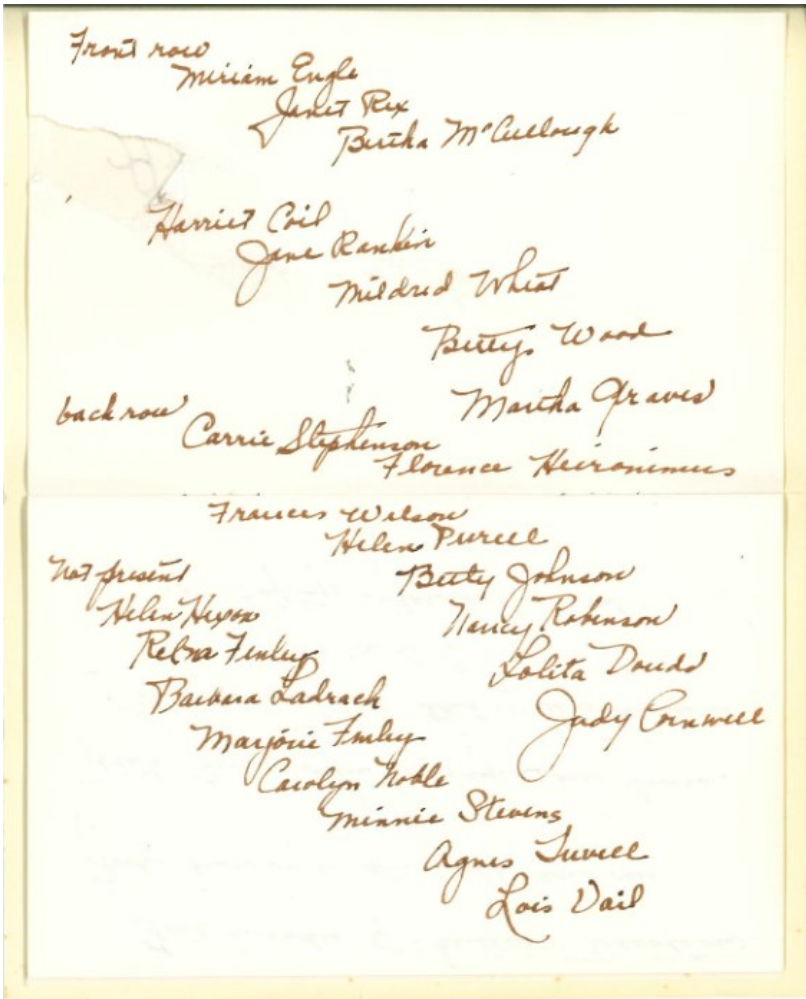 Front row
Miriam Engle
Janet Rex
Bertha McCullough
Harriet Coil
Jane Rankin
Mildred Wheat
Bettys Wood
Martha Graves
back row
Carrie Stephenson
Florence Heironimus
Frances Wilson
Helen Purcell
Betty Johnson
Nancy Robinson
Lolita Doudd
Judy Cornwell
Not present
Helen Hixon
Finley
Barbara Ladrach
Marjorie Finley
Carolyn Noble
Minnie Stevens
Agnes
Lois Vail